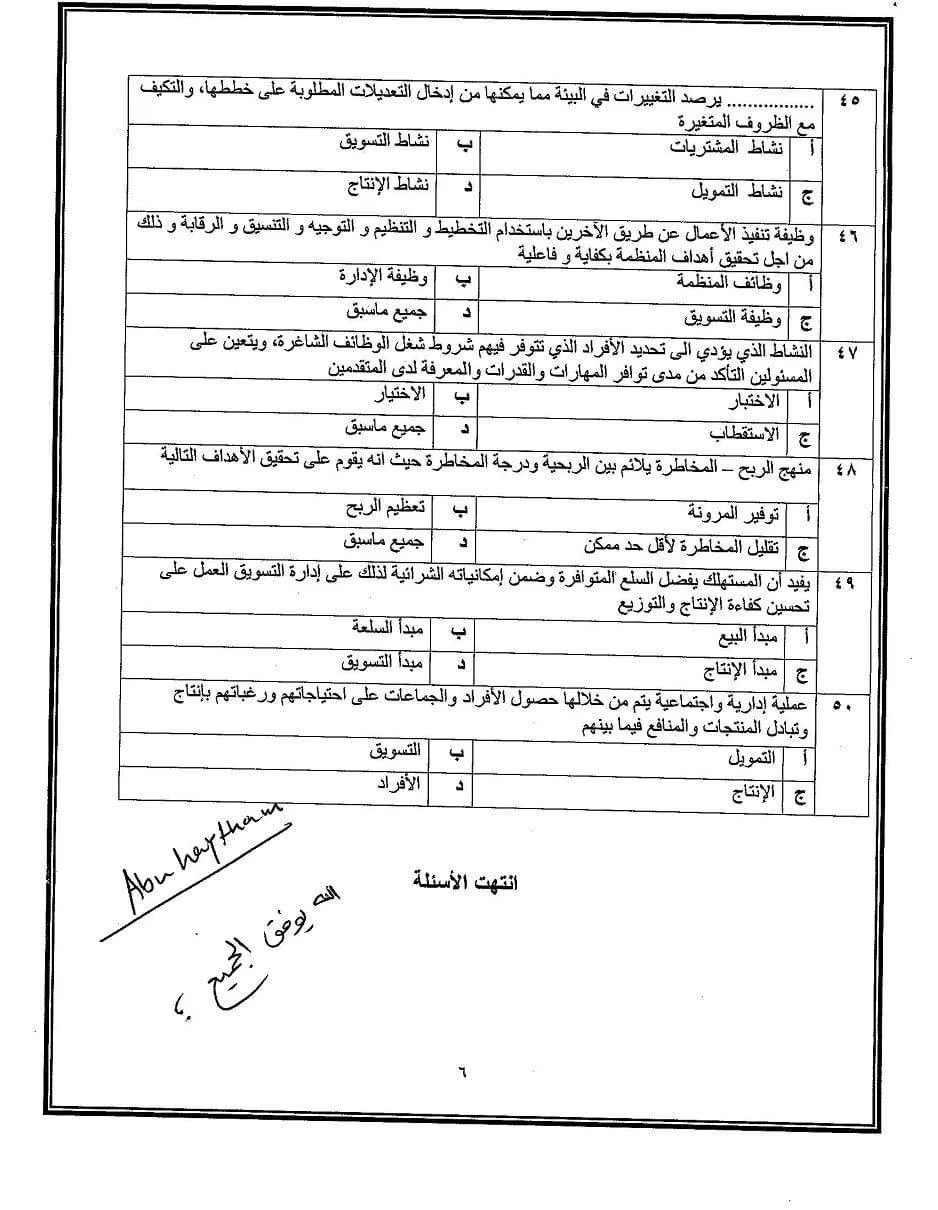 ٤٥ ................ يرصد التغييرات في البيئة مما يمكنها من إدخال التعديلات المطلوبة على خططها، والتكيف
مع الظروف المتغيرة
أ نشاط المشتريات ب نشاط التسويق
ج نشاط التمويل د نشاط الإنتاج
٤٦ وظيفة تنفيذ الأعمال عن طريق الآخرين باستخدام التخطيط و التنظيم و التوجيه و التنسيق و الرقابة و ذلك
من اجل تحقيق أهداف المنظمة بكفاية و فاعلية
أ وظائف المنظمة ب وظيفة الإدارة
ج وظيفة التسويق د جميع ماسبق
٤٧ النشاط الذي يؤدي الى تحديد الأفراد الذي تتوفر فيهم شروط شغل الوظائف الشاغرة، ويتعين على
المسئولين التأكد من مدى توافر المهارات والقدرات والمعرفة لدى المتقدمين
أ الاختبار ب الاختيار
ج الاستقطاب د جميع ماسبق
٤٨ منهج الربح – المخاطرة يلائم بين الربحية ودرجة المخاطرة حيث انه يقوم على تحقيق الأهداف التالية
أ توفير المرونة ب تعظيم الربح
ج تقليل المخاطرة لأقل حد ممكن د جميع ماسبق
٤٩ يفيد أن المستهلك يفضل السلع المتوافرة وضمن إمكانياته الشرائية لذلك على إدارة التسويق العمل على
تحسين كفاءة الإنتاج والتوزيع
أ مبدأ البيع ب مبدأ السلعة
ج مبدأ الإنتاج د مبدأ التسويق
٥٠ عملية إدارية واجتماعية يتم من خلالها حصول الأفراد والجماعات على احتياجاتهم ورغباتهم بإنتاج
وتبادل المنتجات والمنافع فيما بينهم
أ التمويل ب التسويق
ج الإنتاج د الأفراد
Abu haytham
انتهت الأسئلة
الله يوفق الجميع
٦